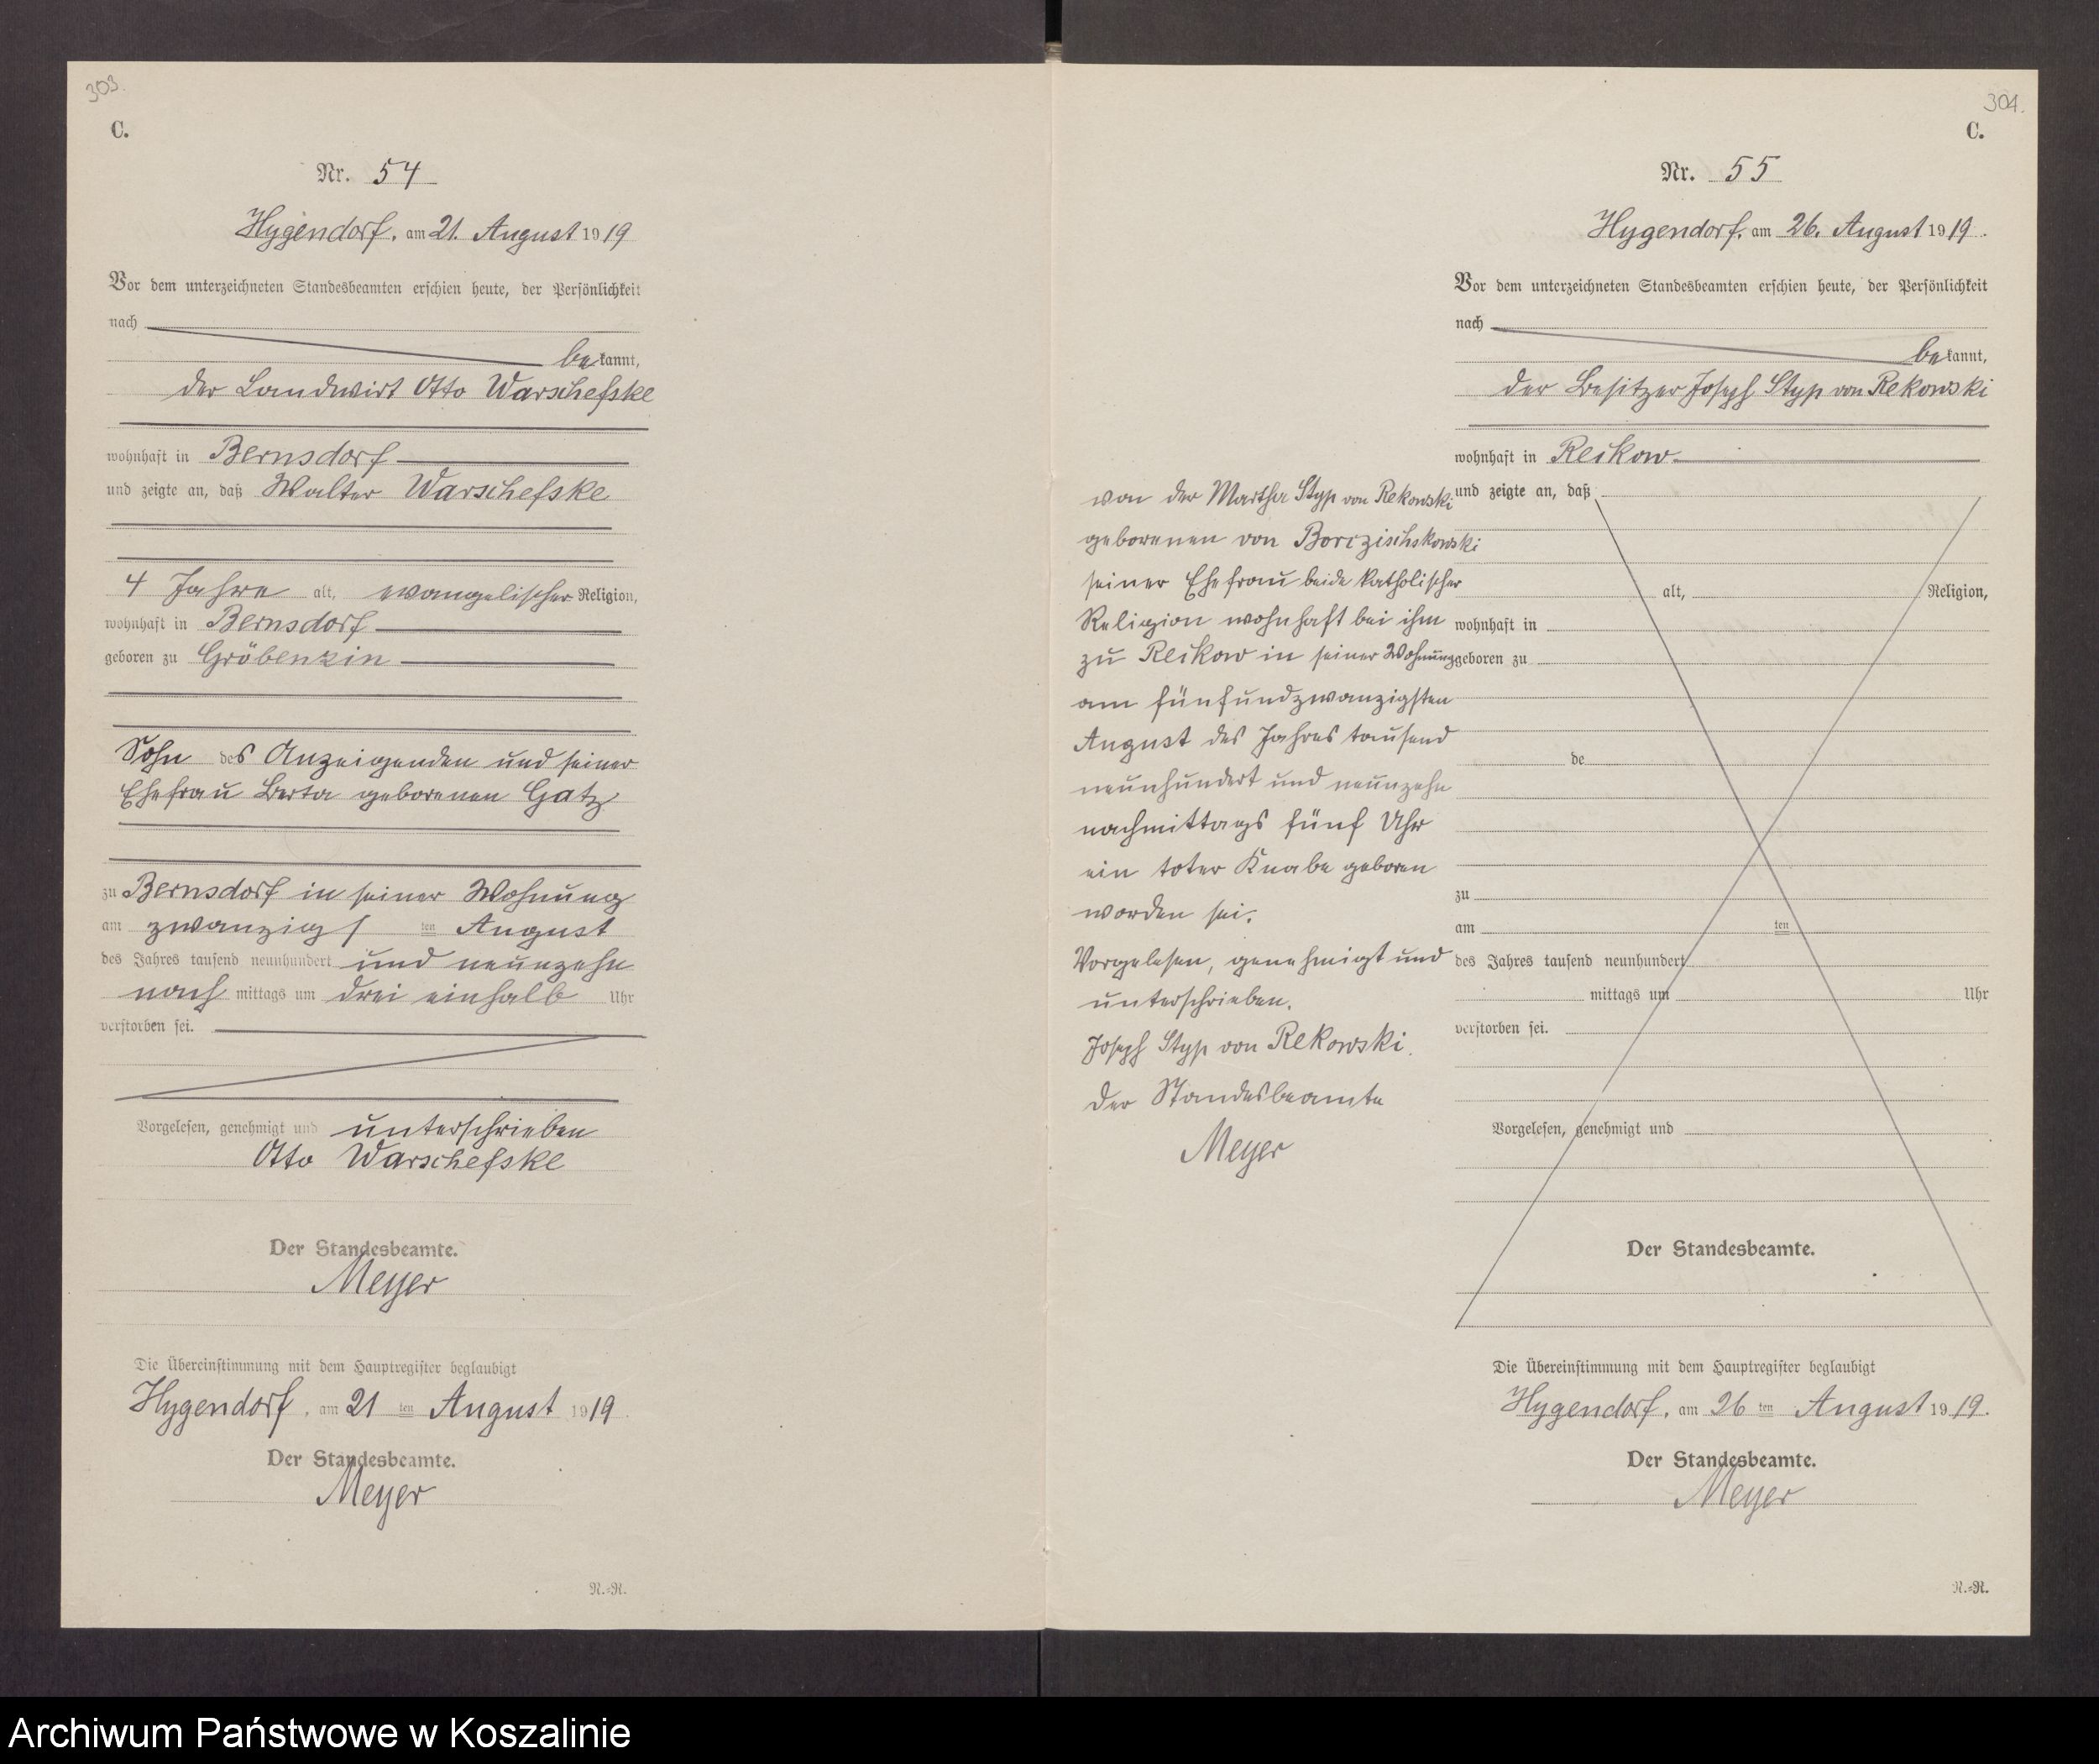 303.
C.
Nr. 54
Hygendorf, am 21. August 1919
Vor dem unterzeichneten Standesbeamten erschien heute, der Persönlichkeit
nach
bekannt,
der Landwirt Otto Warschefske
wohnhaft in Bernsdorf
und zeigte an, daß Walter Warschefske
4 Jahre alt, evangelischer Religion,
wohnhaft in Bernsdorf
geboren zu Gröbenzin
Sohn des Anzeigenden und seiner
Ehefrau Berta geborenen Gatz
zu Bernsdorf in seiner Wohnung
am zwanzigsten August
des Jahres tausend neunhundert und neunzehn
nach mittags um drei einhalb Uhr
verstorben sei.
Vorgelesen, genehmigt und unterschrieben
Otto Warschefske
Der Standesbeamte.
Meyer
Die Übereinstimmung mit dem Hauptregister beglaubigt
Hygendorf, am 21 ten August 1919
Der Standesbeamte.
Meyer
N.=N.
304.
C.
Nr. 55
Hygendorf, am 26. August 1919.
Vor dem unterzeichneten Standesbeamten erschien heute, der Persönlichkeit
nach
bekannt,
der Besitzer Joseph Styp von Rekowski
wohnhaft in Reikow
von der Martha Styp von Rekowski
geborenen von Borczischskowski
seiner Ehefrau beide katholischer
Religion wohnhaft bei ihm
zu Reikow in seiner Wohnung
am fünfundzwanzigsten
August des Jahres tausend
neunhundert und neunzehn
nachmittags fünf Uhr
ein toter Knabe geboren
worden sei.
Vorgelesen, genehmigt und
unterschrieben.
Joseph Styp von Rekowski.
Der Standesbeamte
Meyer
und zeigte an, daß
alt, Religion,
wohnhaft in
geboren zu
de
zu
am ten
des Jahres tausend neunhundert
mittags um Uhr
verstorben sei.
Vorgelesen, genehmigt und
Der Standesbeamte.
Die Übereinstimmung mit dem Hauptregister beglaubigt
Hygendorf, am 26 ten August 1919.
Der Standesbeamte.
Meyer
N.=N.
Archiwum Państwowe w Koszalinie